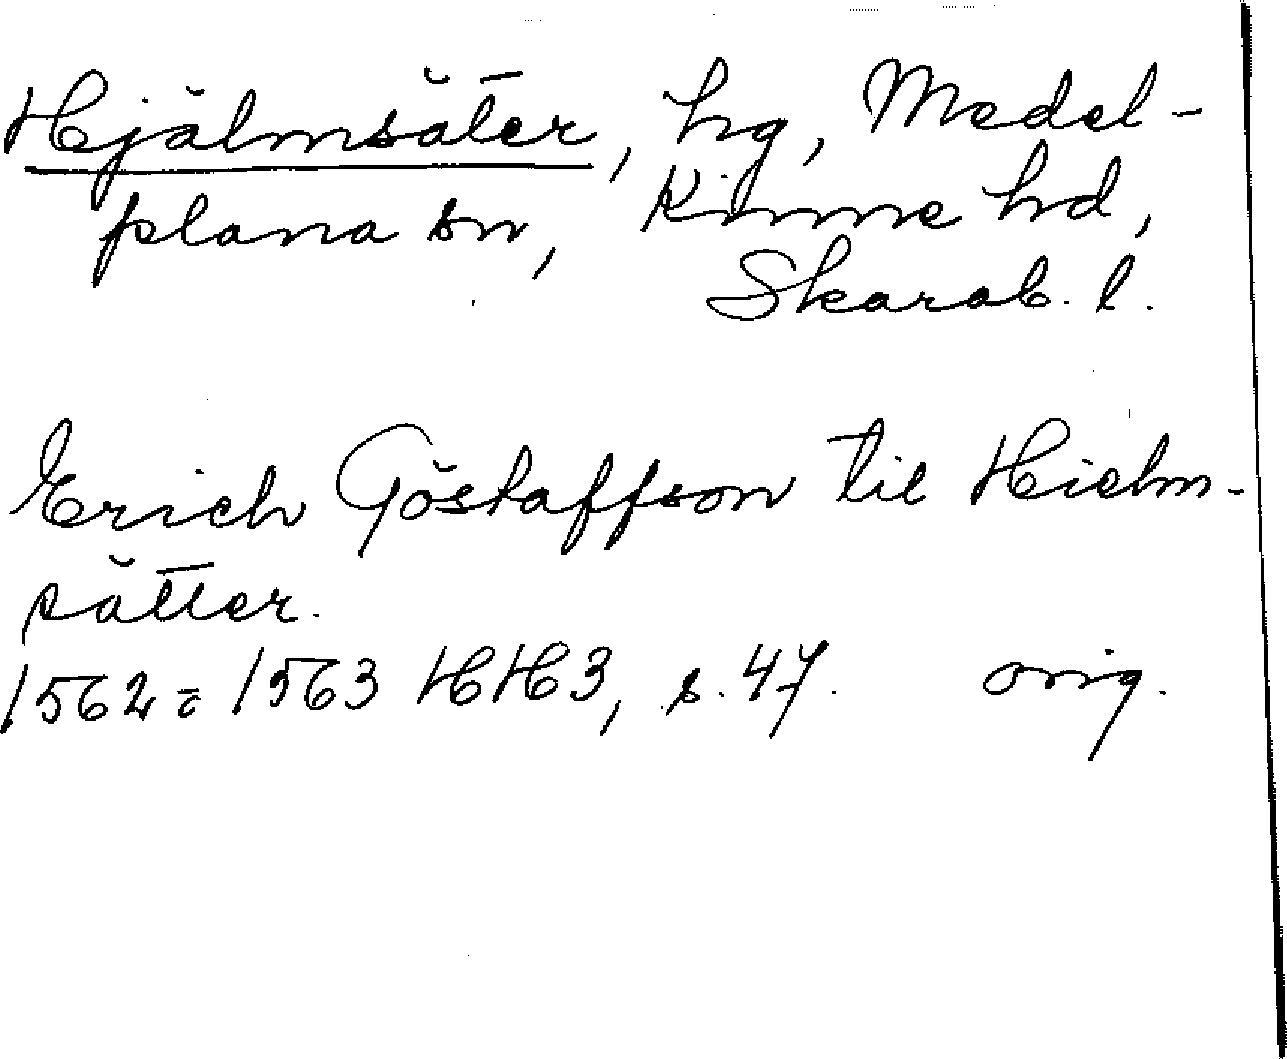 Hjälmsäter, hg, Medel-
plana sn, Kinne hd,
Skarab. l.
Erich Göstaffson til Hielm-
sätter.
1562-1563 HH3, s. 47. orig.